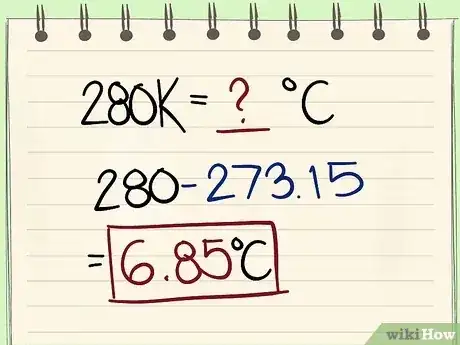 280K = ? °C
280-273.15
= 6.85°C
wikiHow